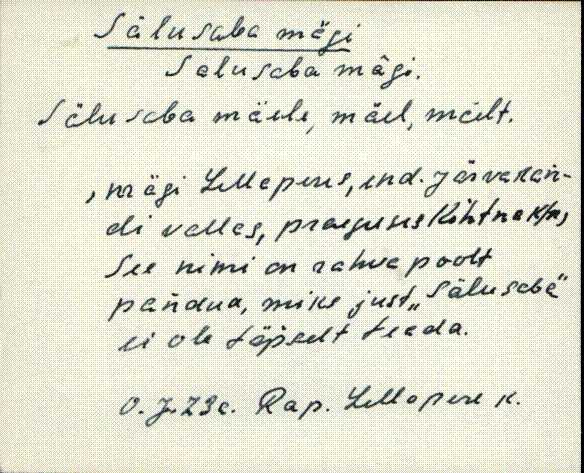 Sälusaba mägi
Salusaba mägi.
Sälusaba mäele, mäel, mäelt.
, mägi Lellaperes, end. Järvakan-
di vallas, praeguses Kõhtna k/n,
See nimi on rahva poolt
pandud, miks just „Sälusaba"
ei ole täpselt teada.
Rap. Lellapere k.